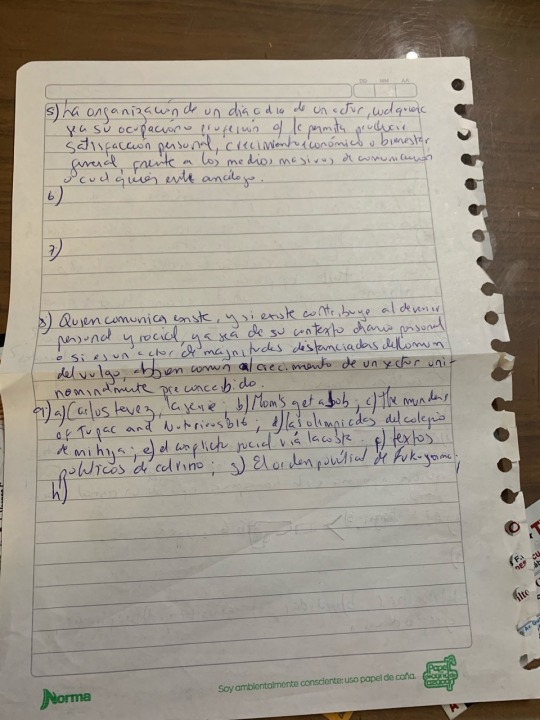 DD MM AA
5) La organización de un día a día de un actor, cualquiera
sea su ocupación o profesión q le permita producir
satisfacción personal, crecimiento económico o bienestar
general frente a los medios masivos de comunicación
o cualquier ente análogo.
6)
7)
8) Quien comunica existe, y si existe contribuye al devenir
personal y social, ya sea de su contexto diario personal
o si es un actor de magnitudes distanciadas del común
del vulgo, bien común crecimiento de un sector uni-
nominalmente preconcebido.
9) a) Carlos tevez, la serie; b) Mom's got a job; c) The murders
of Tupac and Notorious big; d) las olimpiadas del colegio
de mi hija; e) el conflicto social vía lacoste. f) textos
políticos de calvino; g) El orden político de Fukuyama;
h)
Norma
Soy ambientalmente consciente: uso papel de caña.
Papel